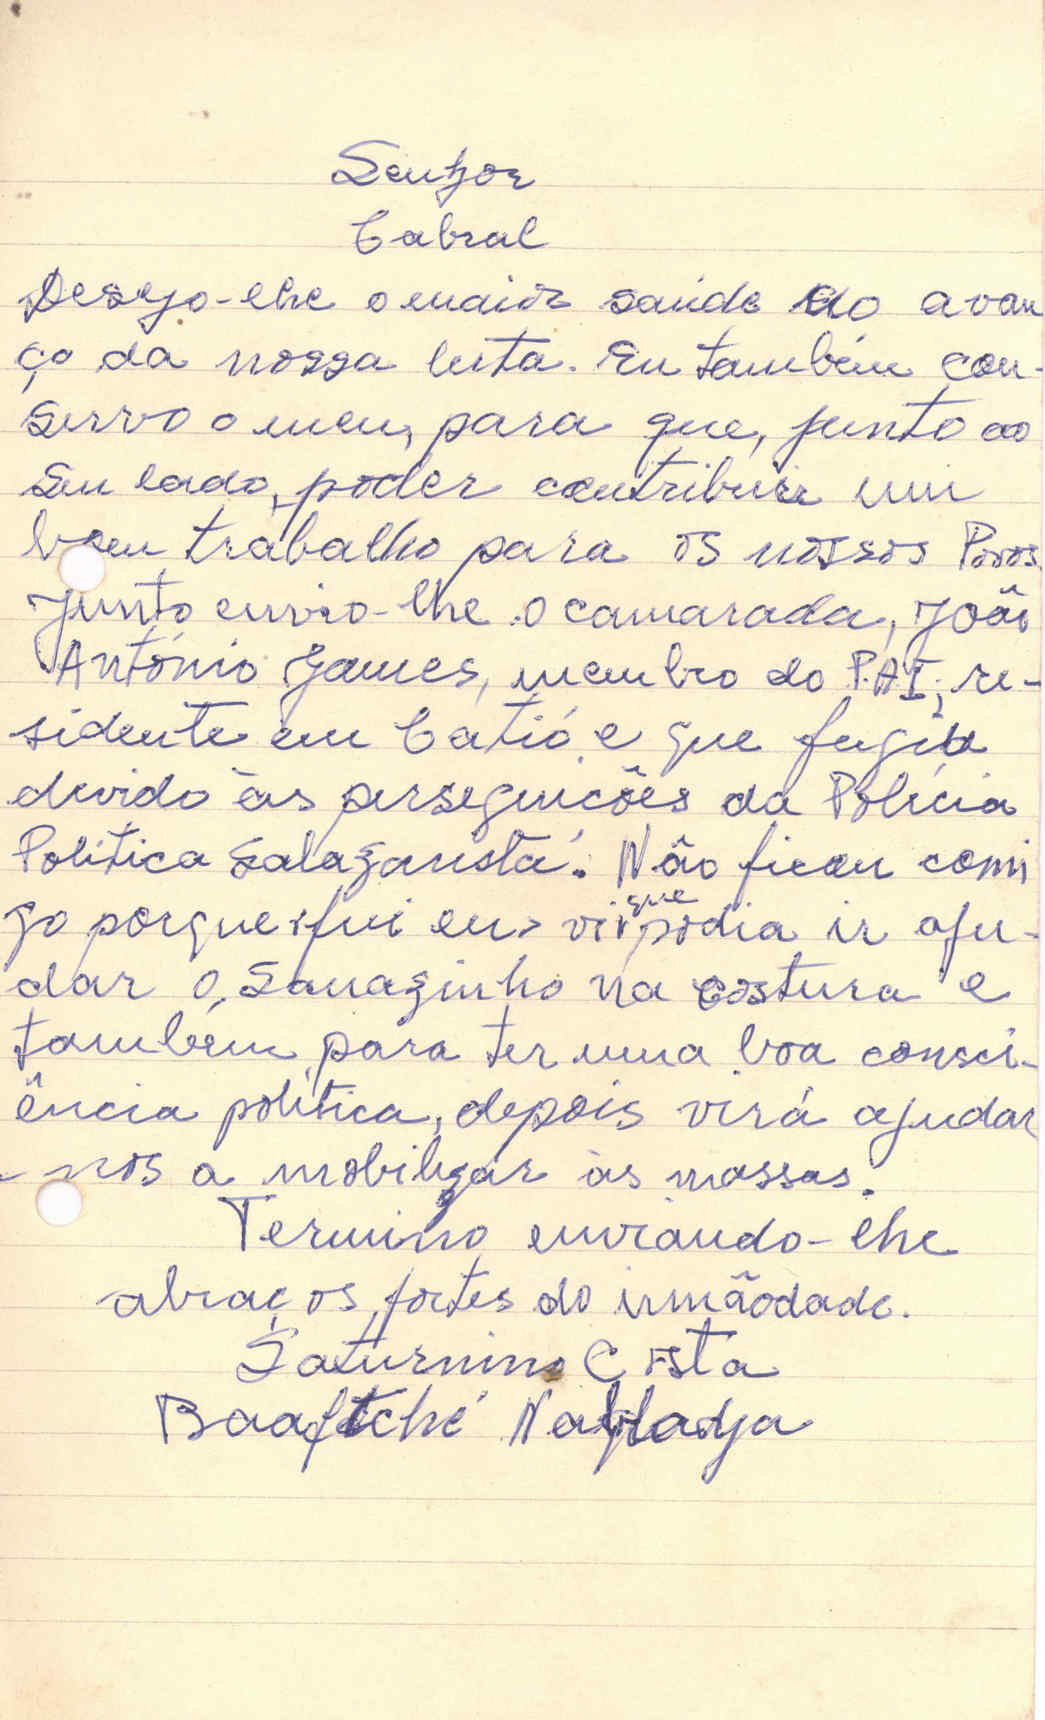 Senhor
Cabral
Desejo-lhe o maior saúde ao avan
ço da nossa luta. Eu também con-
servo o meu, para que, junto ao
seu lado, poder contribuir um
bom trabalho para os nossos Povos.
Junto envio-lhe o camarada, João
António Gomes, membro do P.A.I, re-
sidente em Catió e que fugiu
devido às perseguições da Polícia
Política Salazarista. Não ficou comi
go porque fui eu vi que podia ir aju-
dar o Sanazinho na costura e
também para ter uma boa consci-
ência política, depois virá ajudar
-nos a mobilizar as massas.
Termino enviando-lhe
abraços fortes do irmãodade.
Saturnino Costa